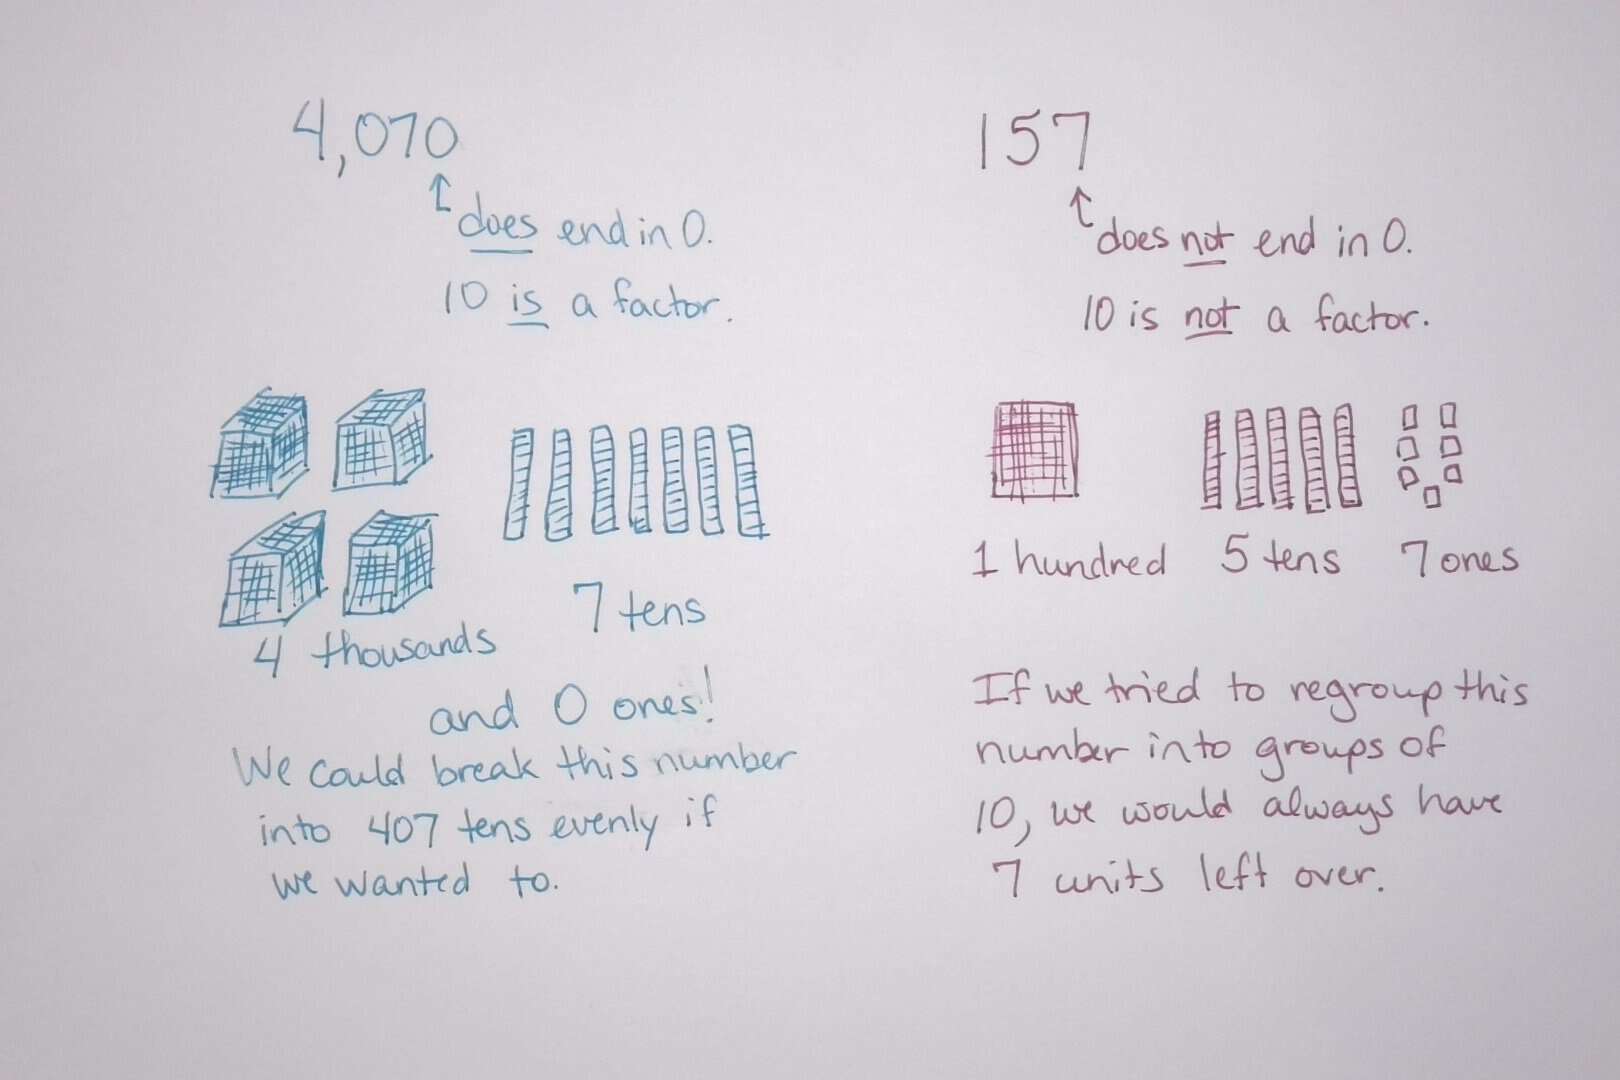 4,070
does end in 0.
10 is a factor.
4 thousands
7 tens
and 0 ones!
We could break this number
into 407 tens evenly if
we wanted to.
157
does not end in 0.
10 is not a factor.
1 hundred 5 tens 7 ones
If we tried to regroup this
number into groups of
10, we would always have
7 units left over.